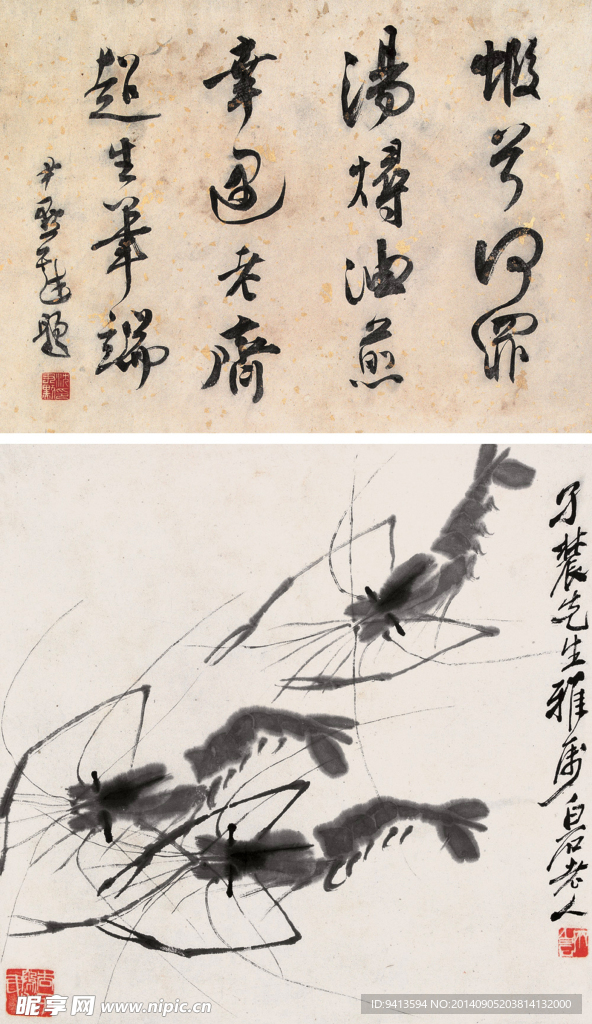 蝦兮何罪
湯燖油煎
幸遇老齊
超生筆端
尹默題
子農先生雅屬白石老人
昵享网 www.nipic.cn
ID:9413594 NO:20140905203814132000